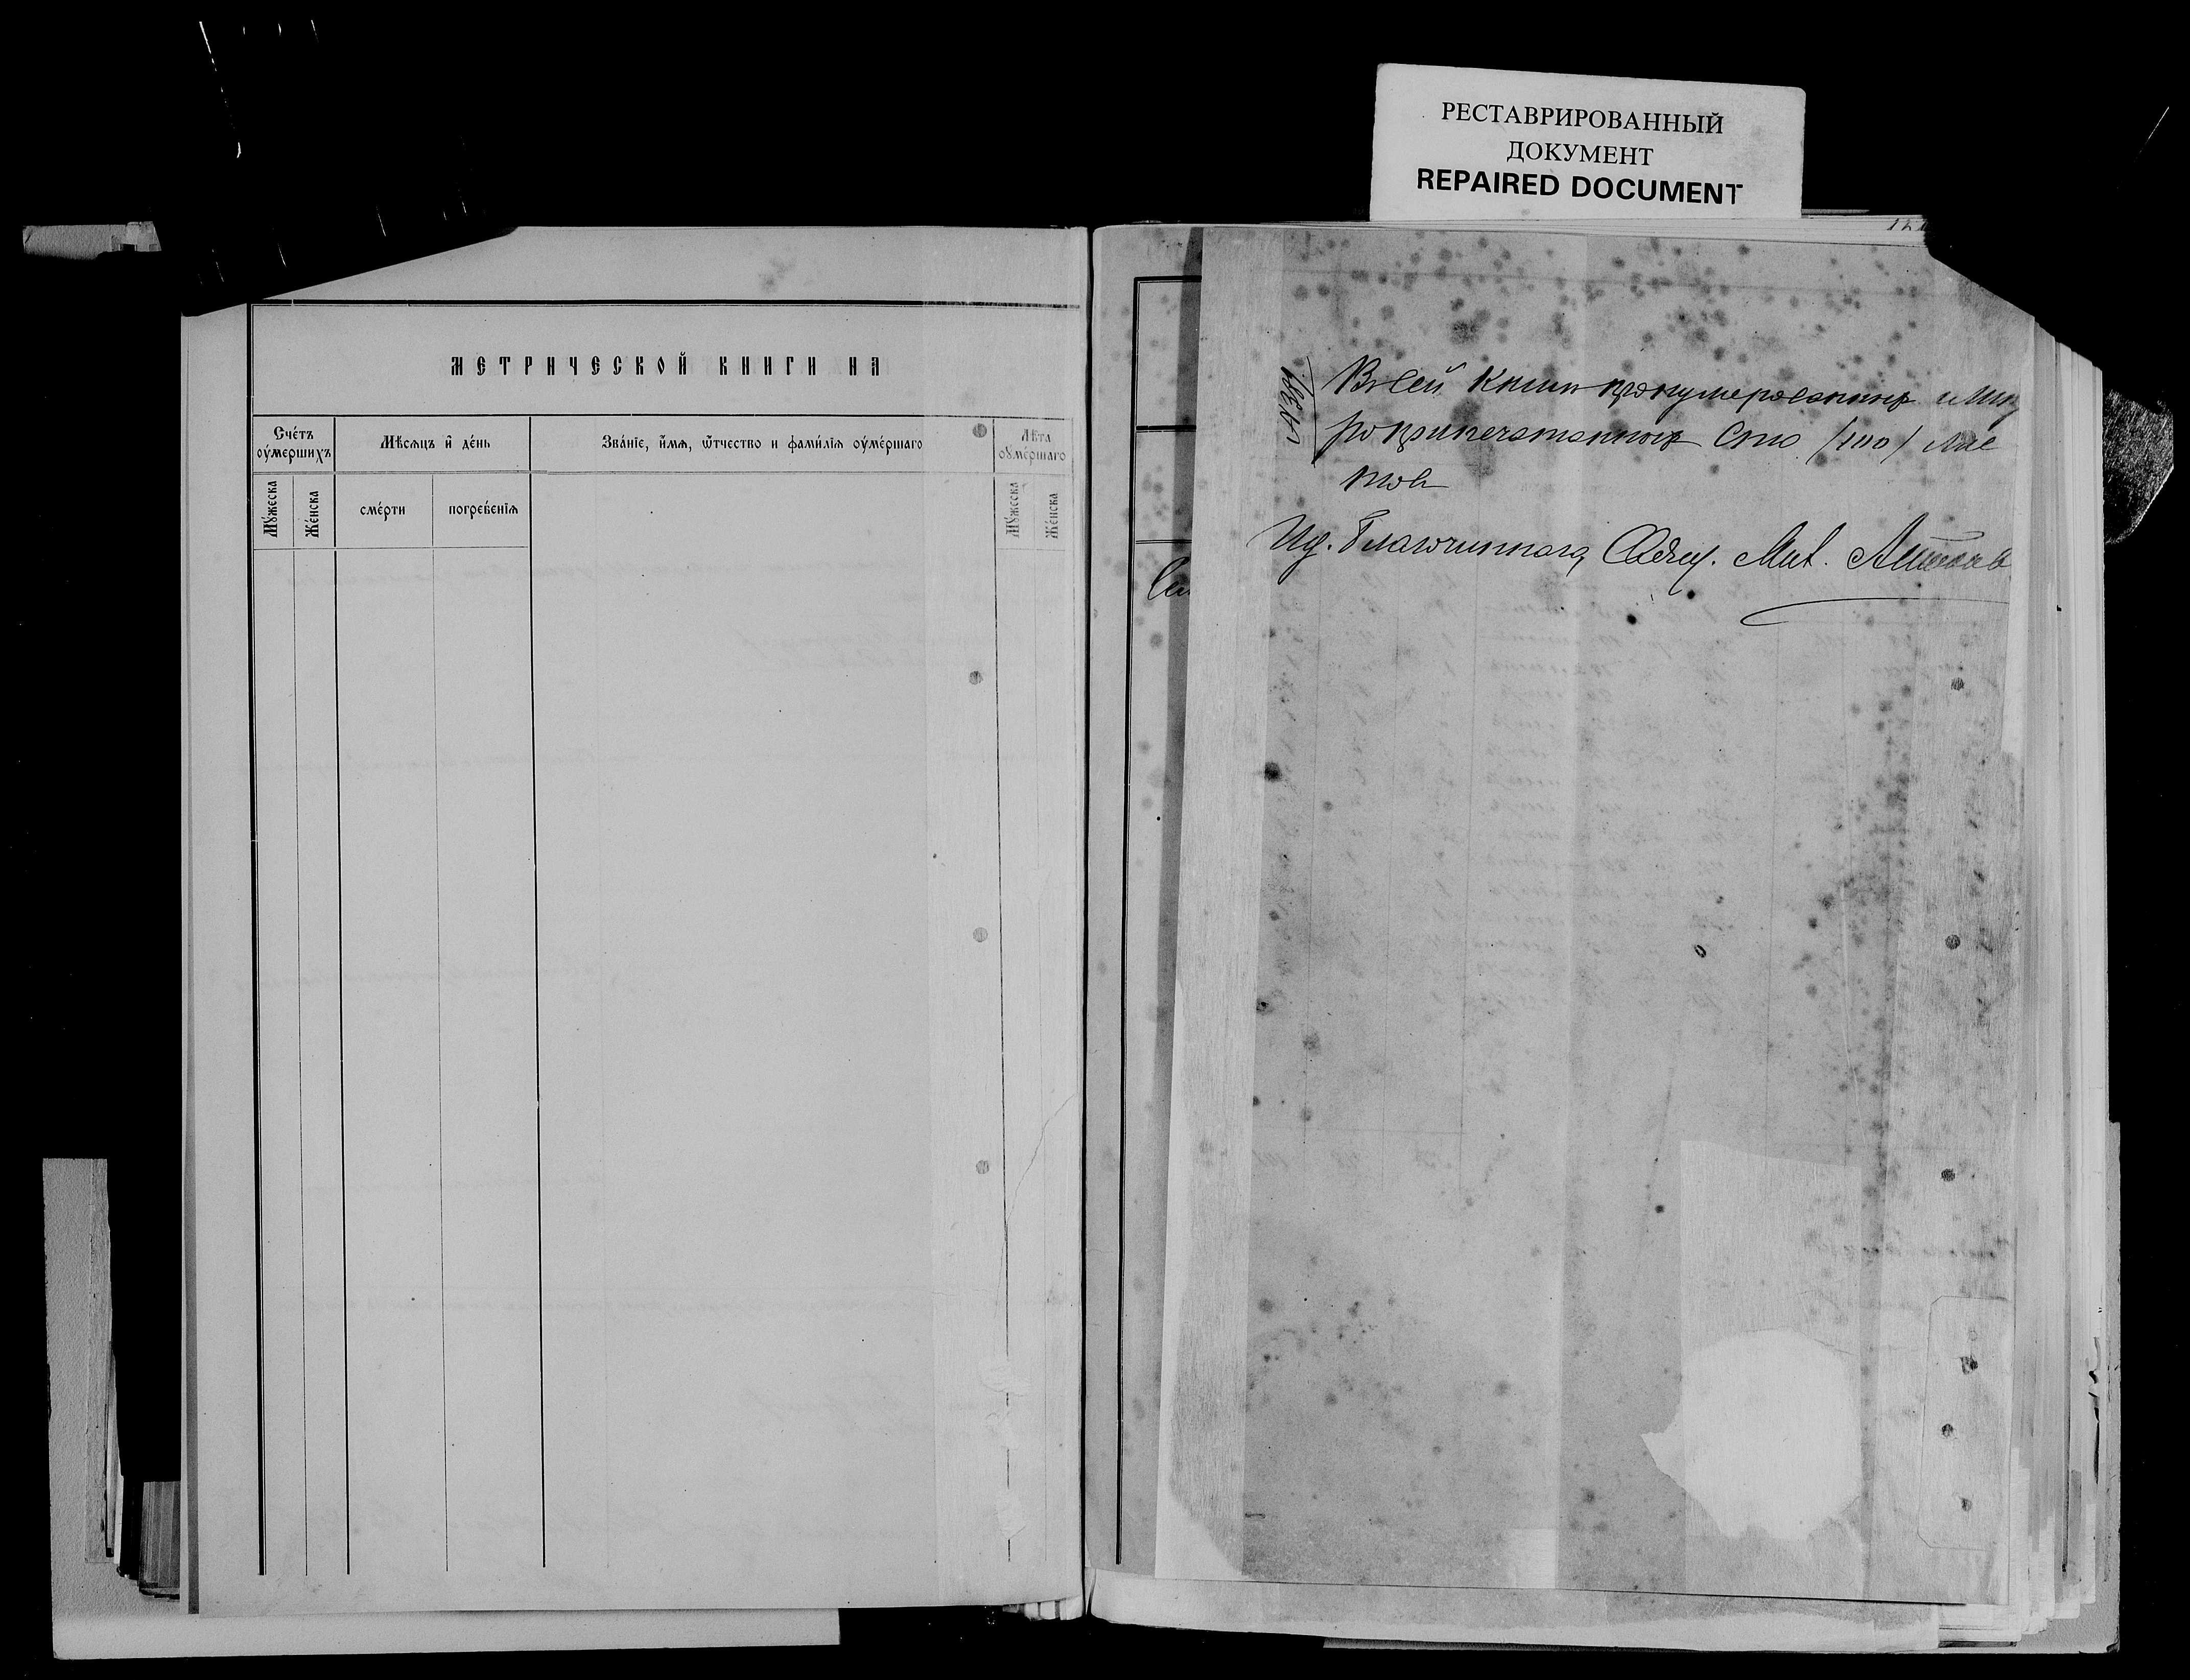 РЕСТАВРИРОВАННЫЙ
ДОКУМЕНТ
REPAIRED DOCUMENT
МЕТРИЧЕСКОЙ КНИГИ НА
Сче́тъ оу́мершихъ
Мѣсяцъ и҆ де́нь
Зва́нїе, и҆́мѧ, ѿтчество и фами́лїѧ оу́ме́ршаго
Лѣта оу́ме́ршаго
Мꙋ́жеска
Же́нска
сме́рти
погребе́нїѧ
Мꙋ́жеска
Же́нска
В сей книге пронумерованныхъ и шну
роприпечатанныхъ Сто /100/ лис
товъ
Ид. Благочиннаго, Свящ. Мих.